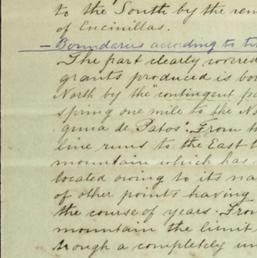 to the South by the rem
of Encinillas.
– Boundaries according to ti
The part clearly covered
grants produced is bo
North by the "contingent pa
spring one mile to the No
guna de Patos". From t
line runs to the East t
mountain which has
located owing to its na
of other points having
the course of years. From
mountain the limit
trough a completely un